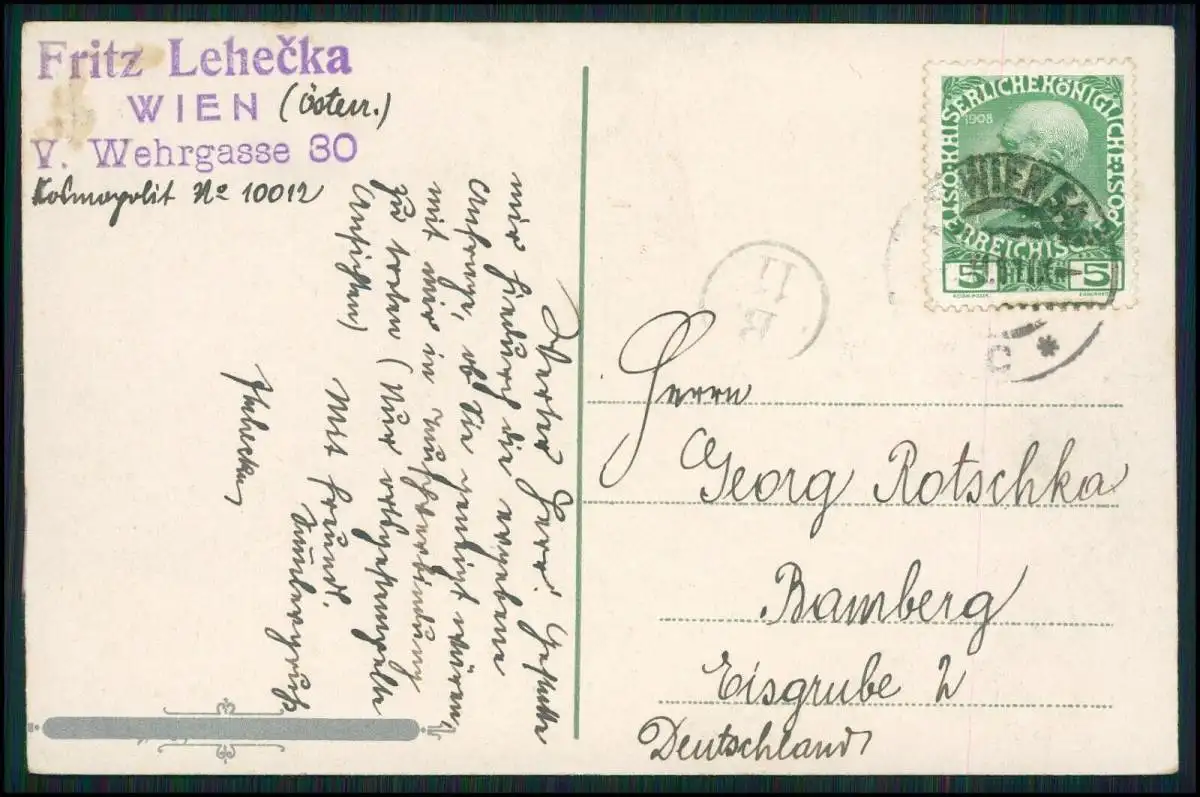 Fritz Lehečka
WIEN (Österr.)
V. Wehrgasse 30
Kosmopolit No 10012
Werter Herr! Gestatte
mir hiedurch die ergebene
Anfrage, ob Sie geneigt wären,
mit mir in
zu treten (Nur
Ansichten)
Mit freund.
Lehečka
KAISERLICHE KÖNIGLICHE ÖSTERREICHISCHE POST
1908
5 5
WIEN 54
11
Herrn
Georg Rotschka
Bamberg
Eisgrube 2
Deutschland